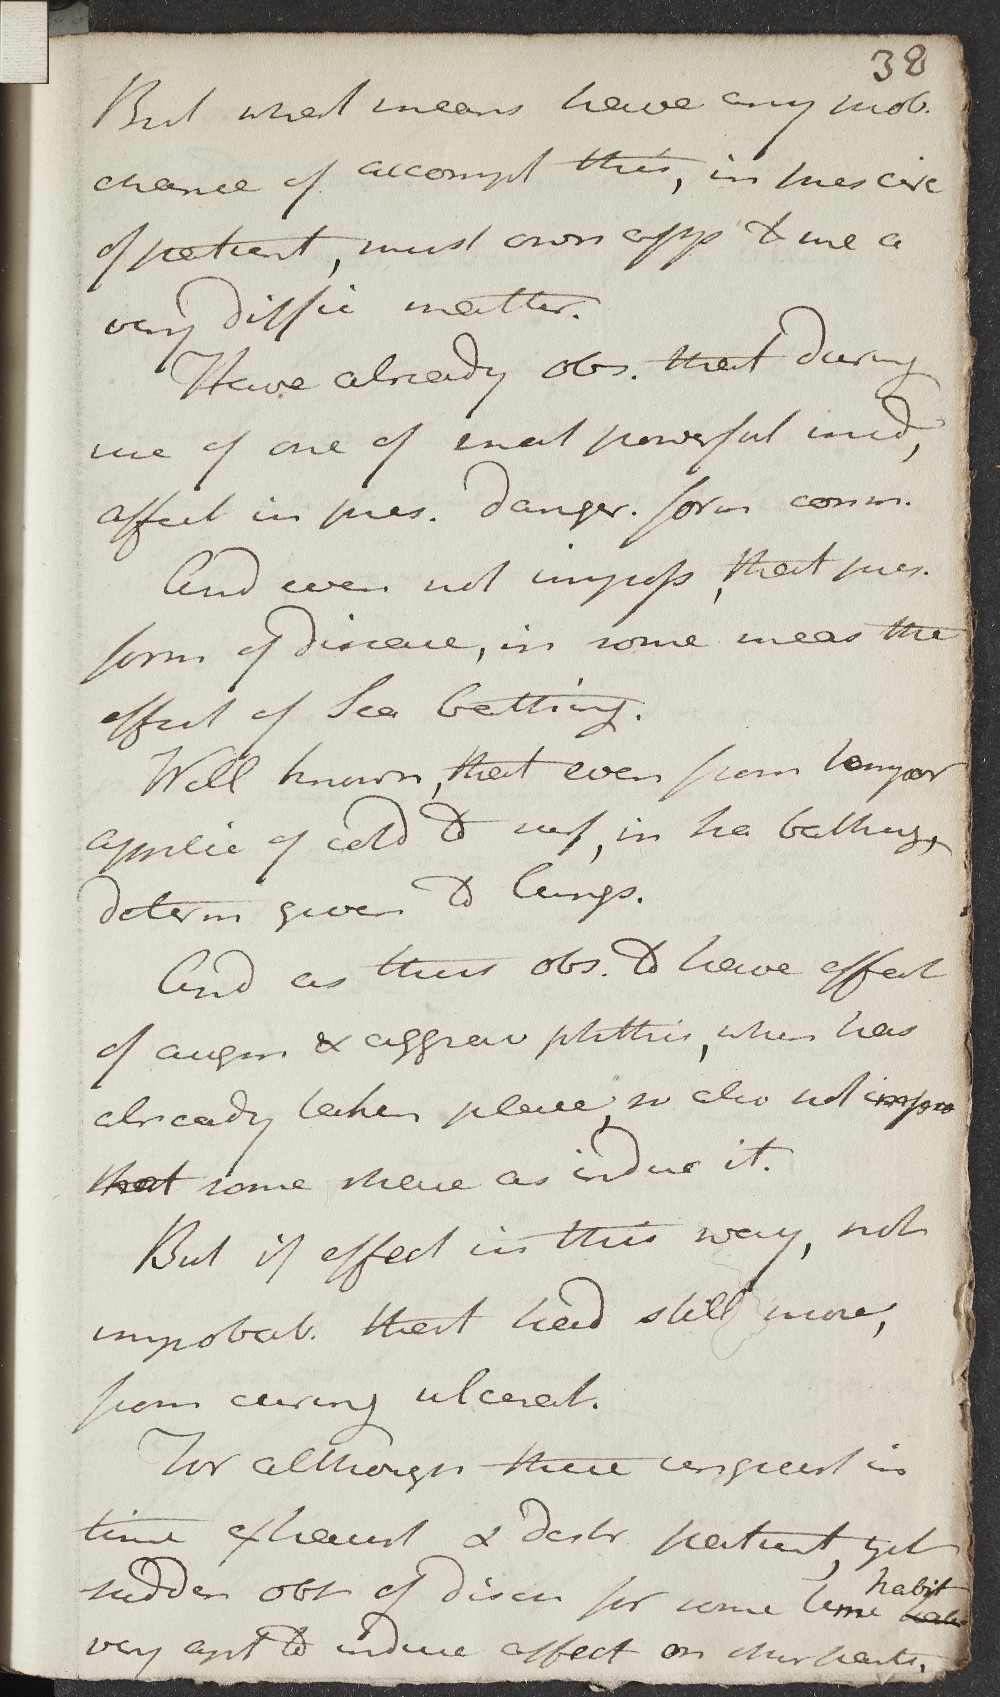 38
But what means have any prob.
chance of accompl this, in pres circ
of patient, must own app to me a
very diffic matter.
Have already obs. that during
use of one of most powerful med,
affect in pres. danger. form comm.
And even not imposs, that pres.
form of disease, in some meas the
effect of Sea bathing.
Well known, that even from tempor
applic of cold to surf, in sea bathing,
determ given to lungs.
And as thus obs. to have effect
of augm & aggrav phthis, when has
already taken place, so also not impro
that some share as induc it.
But if effect in this way, not
improbab. that had still more,
from curing ulcerat.
For although these unquest in
time exhaust & destr patient, yet
sudden obst of disch for some time habit
very apt to induce affect on other parts.